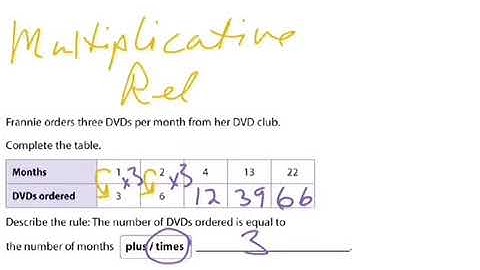 Multiplicative
Rel
Frannie orders three DVDs per month from her DVD club.
Complete the table.
Months 1 2 4 13 22
x3 x3
DVDs ordered 3 6 12 39 66
Describe the rule: The number of DVDs ordered is equal to
the number of months plus / times 3.